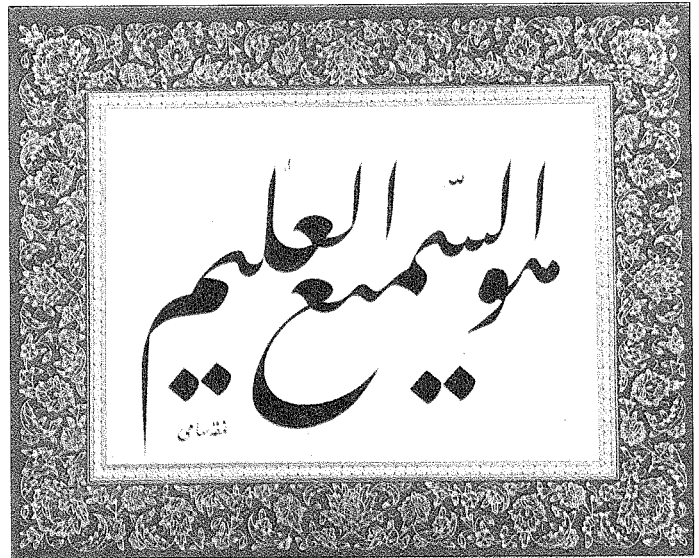 هو السّميع العليم